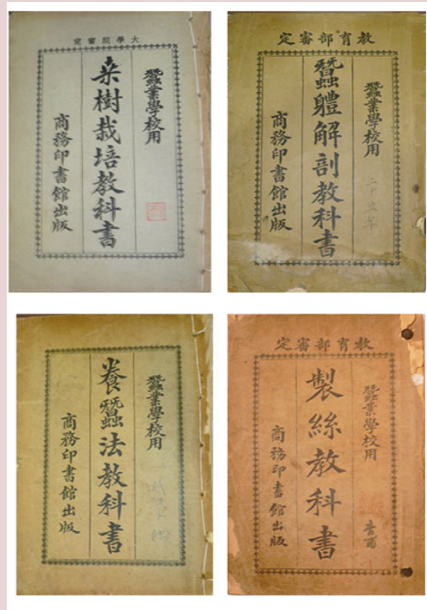 大學院審定
蠶業學校用
桒樹栽培教科書
商務印書館出版
教育部審定
蠶業學校用
二十五年
蠶體解剖教科書
商務印書館出版
蠶業學校用
養蠶法教科書
商務印書館出版
教育部審定
蠶業學校用
製絲教科書
商務印書館出版